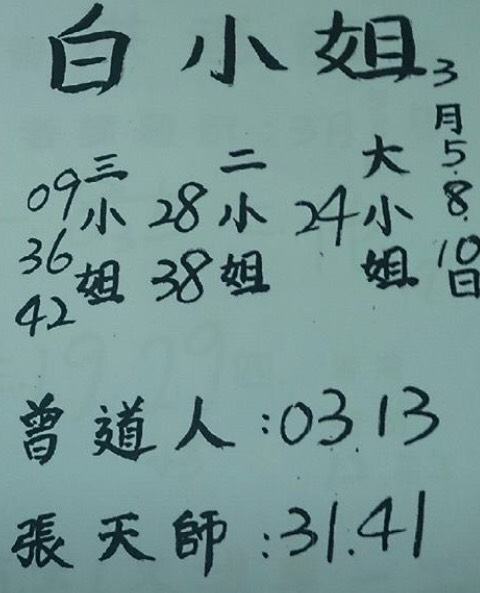 白小姐
3月5.8.10日
大小姐
24
二小姐
28
38
三小姐
09
36
42
曾道人:03.13
張天師:31.41